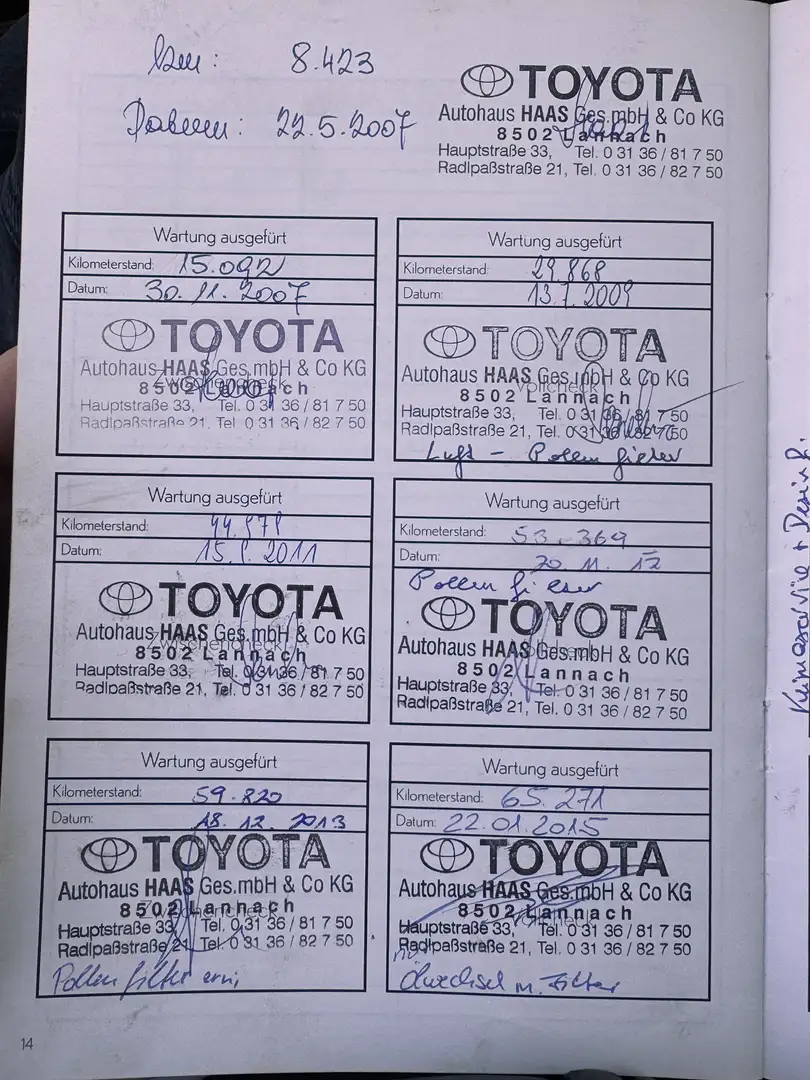 km: 8.423
Datum: 22.5.2007
TOYOTA
Autohaus HAAS Ges.mbH & Co KG
8502 Lannach
Hauptstraße 33, Tel. 0 31 36 / 81 7 50
Radlpaßstraße 21, Tel. 0 31 36 / 82 7 50
Wartung ausgefürt
Kilometerstand: 15.092
Datum: 30.11.2007
TOYOTA
Autohaus HAAS Ges.mbH & Co KG
Zwischencheck
8502 Lannach
Hauptstraße 33, Tel. 0 31 36 / 81 7 50
Radlpaßstraße 21, Tel. 0 31 36 / 82 7 50
Wartung ausgefürt
Kilometerstand: 29.868
Datum: 13.7.2009
TOYOTA
Autohaus HAAS Ges.mbH & Co KG
Vollcheck
8502 Lannach
Hauptstraße 33, Tel. 0 31 36 / 81 7 50
Radlpaßstraße 21, Tel. 0 31 36 / 82 7 50
Luft - Pollen filter
Wartung ausgefürt
Kilometerstand:
Datum:
TOYOTA
Autohaus HAAS Ges.mbH & Co KG
Zwischencheck
8502 Lannach
Hauptstraße 33, Tel. 0 31 36 / 81 7 50
Radlpaßstraße 21, Tel. 0 31 36 / 82 7 50
Wartung ausgefürt
Kilometerstand: 53.369
Datum: 20 11. 12
Pollen filter
TOYOTA
Autohaus HAAS Ges.mbH & Co KG
8502 Lannach
Hauptstraße 33, Tel. 0 31 36 / 81 7 50
Radlpaßstraße 21, Tel. 0 31 36 / 82 7 50
Wartung ausgefürt
Kilometerstand: 59.820
Datum: 18.12.2013
TOYOTA
Autohaus HAAS Ges.mbH & Co KG
8502 Lannach
Zwischencheck
Hauptstraße 33, Tel. 0 31 36 / 81 7 50
Radlpaßstraße 21, Tel. 0 31 36 / 82 7 50
Pollen filter
Wartung ausgefürt
Kilometerstand: 65.271
Datum: 22.01.2015
TOYOTA
Autohaus HAAS Ges.mbH & Co KG
8502 Lannach
Vollcheck
Hauptstraße 33, Tel. 0 31 36 / 81 7 50
Radlpaßstraße 21, Tel. 0 31 36 / 82 7 50
Ölwechsel m. Filter
14